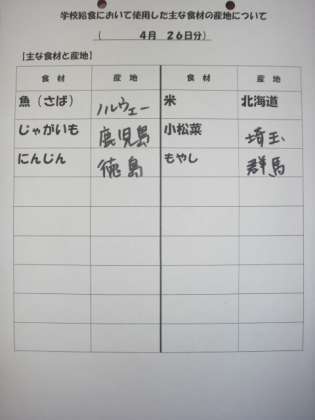 学校給食において使用した主な食材の産地について
（ 4月 26日分）
［主な食材と産地］
食 材 産 地 食 材 産 地
魚（さば） ノルウェー 米 北海道
じゃがいも 鹿児島 小松菜 埼玉
にんじん 徳島 もやし 群馬